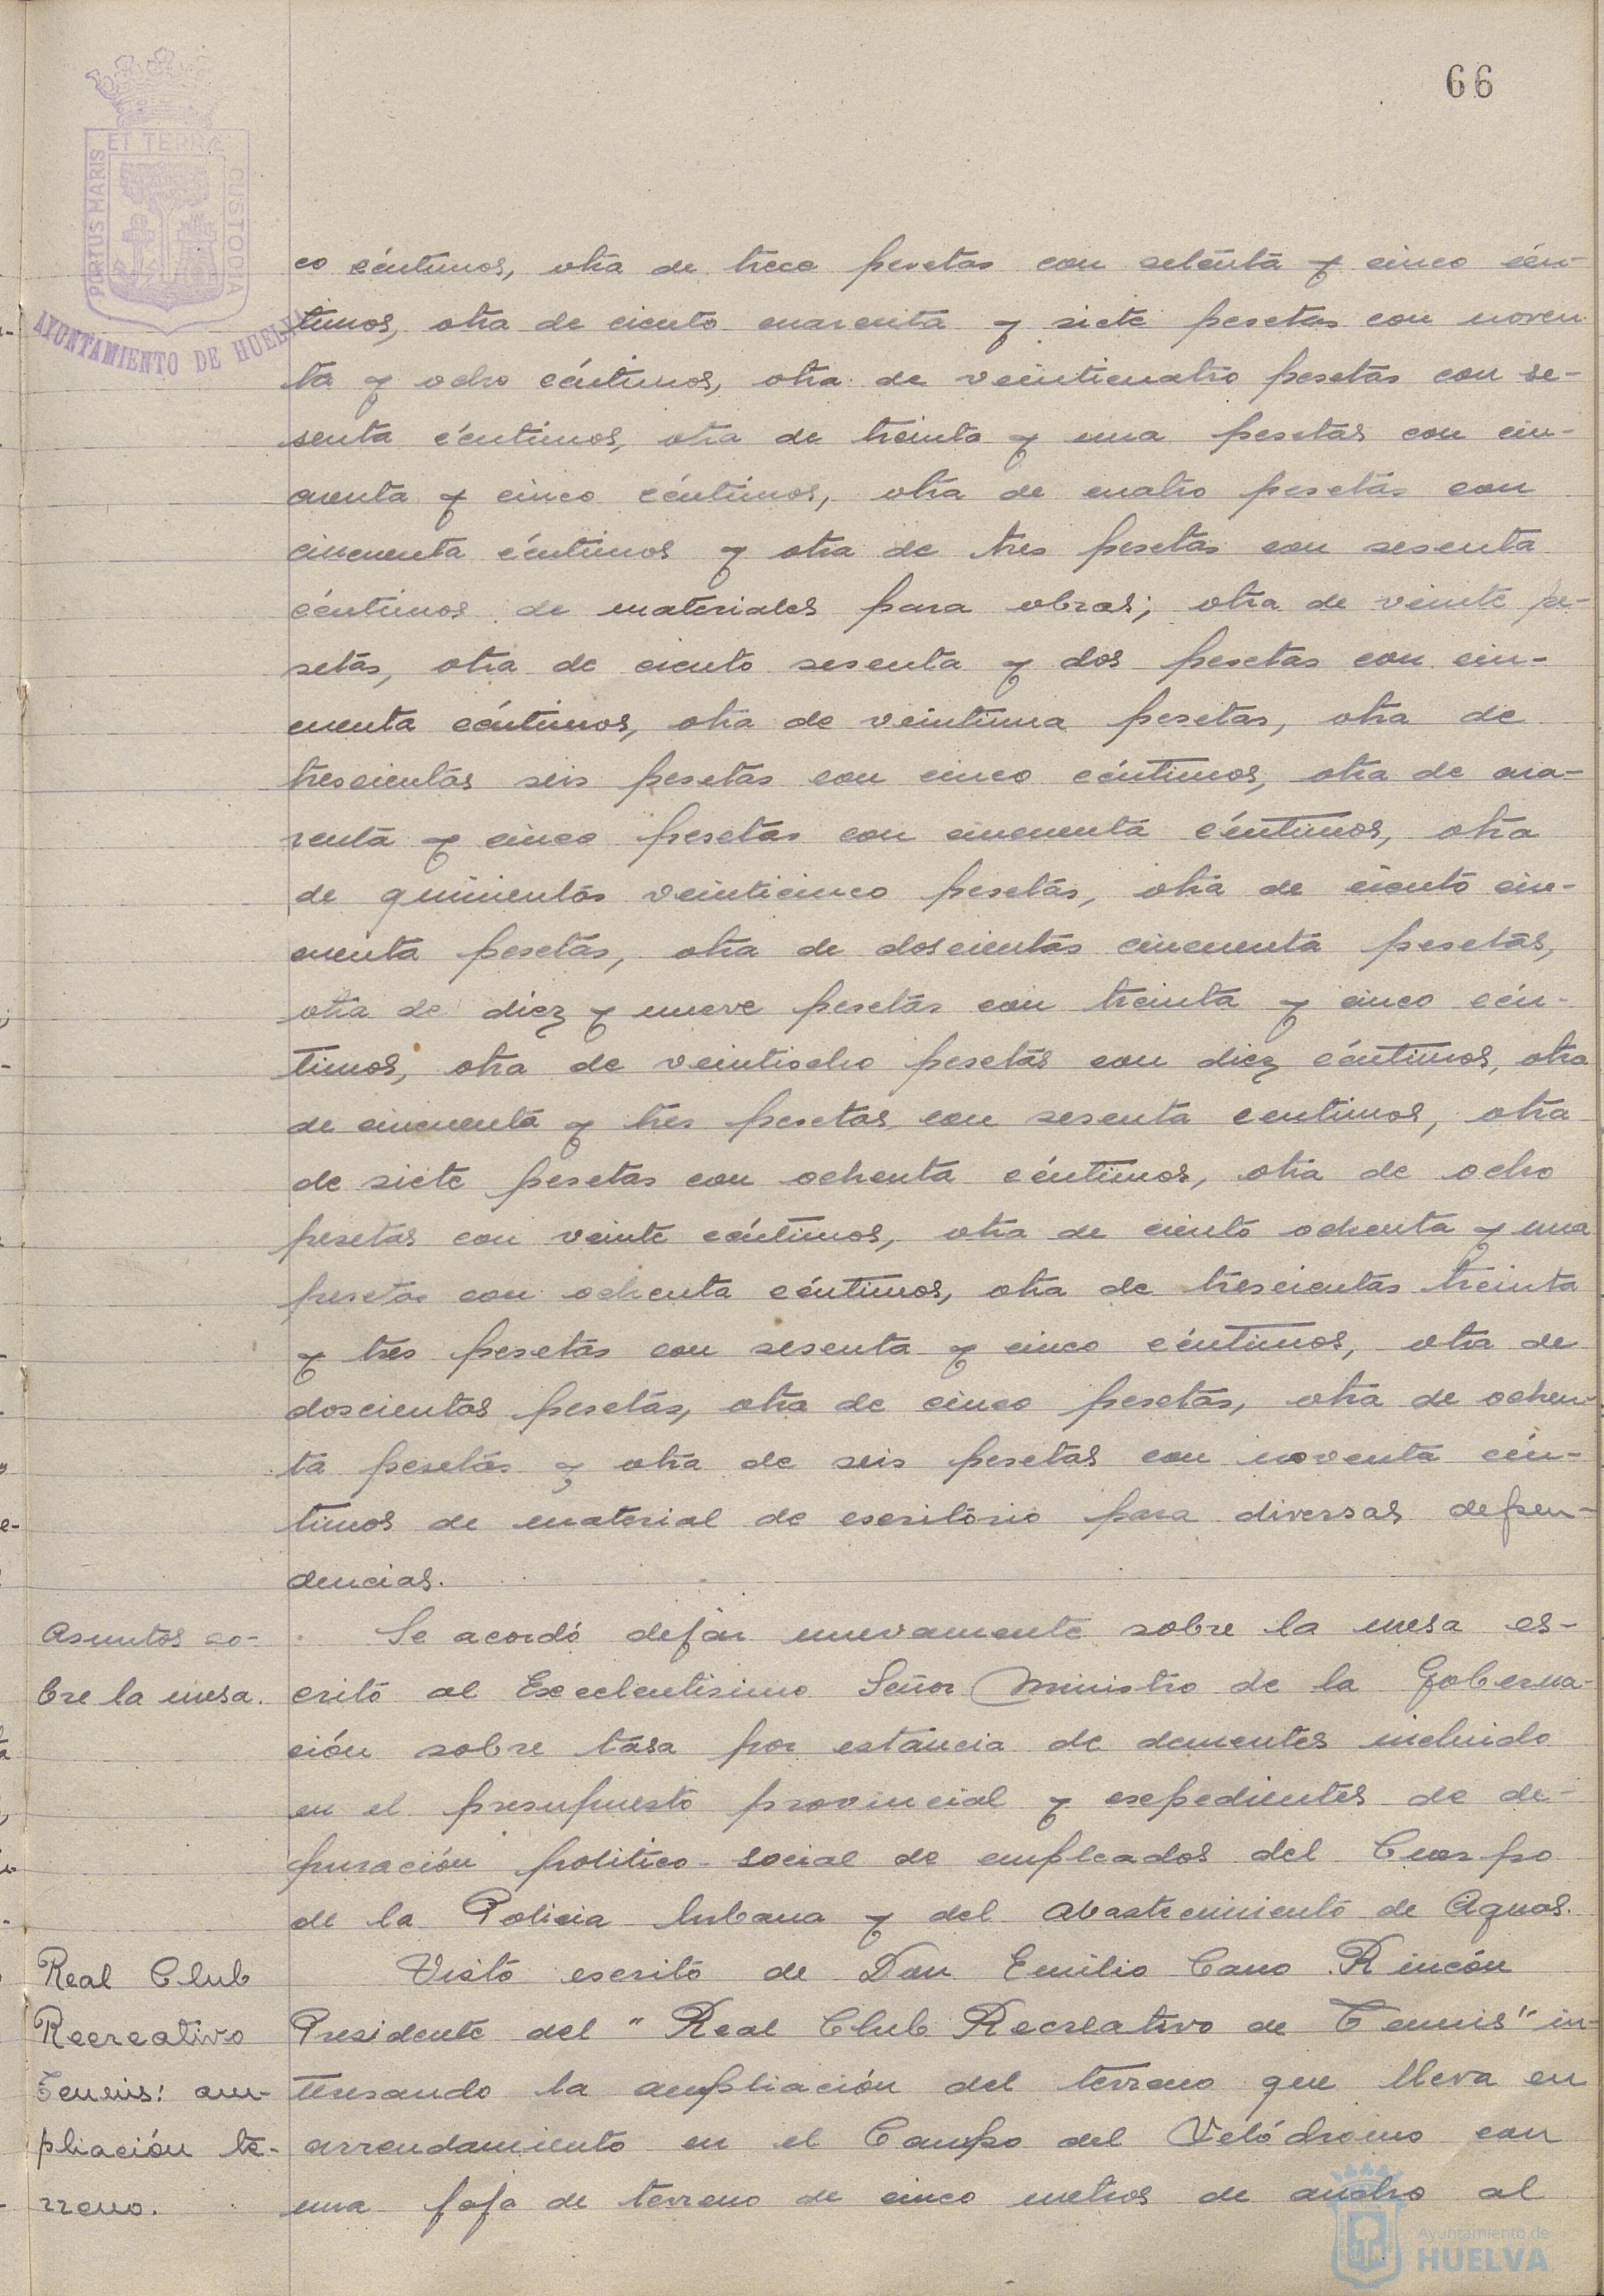 66
ET TERRÆ
PORTUS MARIS
CUSTODIA
AYUNTAMIENTO DE HUELVA
co céntimos, otra de trece pesetas con setenta y cinco cén-
timos, otra de ciento cuarenta y siete pesetas con noven
ta y ocho céntimos, otra de veinticuatro pesetas con se-
senta céntimos, otra de treinta y una pesetas con cin-
cuenta y cinco céntimos, otra de cuatro pesetas con
cincuenta céntimos y otra de tres pesetas con sesenta
céntimos de materiales para obras; otra de veinte pe-
setas, otra de ciento sesenta y dos pesetas con cin-
cuenta céntimos, otra de veintiuna pesetas, otra de
trescientas seis pesetas con cinco céntimos, otra de cua-
renta y cinco pesetas con cincuenta céntimos, otra
de quinientas veinticinco pesetas, otra de ciento cin-
cuenta pesetas, otra de doscientas cincuenta pesetas,
otra de diez y nueve pesetas con treinta y cinco cén-
timos, otra de veintiocho pesetas con diez céntimos, otra
de cincuenta y tres pesetas con sesenta centimos, otra
de siete pesetas con ochenta céntimos, otra de ocho
pesetas con veinte céntimos, otra de ciento ochenta y una
pesetas con ochenta céntimos, otra de trescientas treinta
y tres pesetas con sesenta y cinco céntimos, otra de
doscientas pesetas, otra de cinco pesetas, otra de ochen-
ta pesetas y otra de seis pesetas con noventa cén-
timos de material de escritorio para diversas depen-
dencias.
Asuntos so-
bre la mesa.
Se acordó dejar nuevamente sobre la mesa es-
crito al Excelentisimo Señor Ministro de la Goberna-
ción sobre tasa por estancia de dementes incluido
en el presupuesto provincial y expedientes de de-
puración politico-social de empleados del Cuerpo
de la Policia Urbana y del Abastecimiento de Aguas.
Real Club
Recreativo
Tennis: am-
pliación te-
rreno.
Visto escrito de Don Emilio Cano Rincón
Presidente del "Real Club Recreativo de Tennis" in-
teresando la ampliación del terreno que lleva en
arrendamiento en el Campo del Velódromo con
una faja de terreno de cinco metros de ancho al
Ayuntamiento de
HUELVA